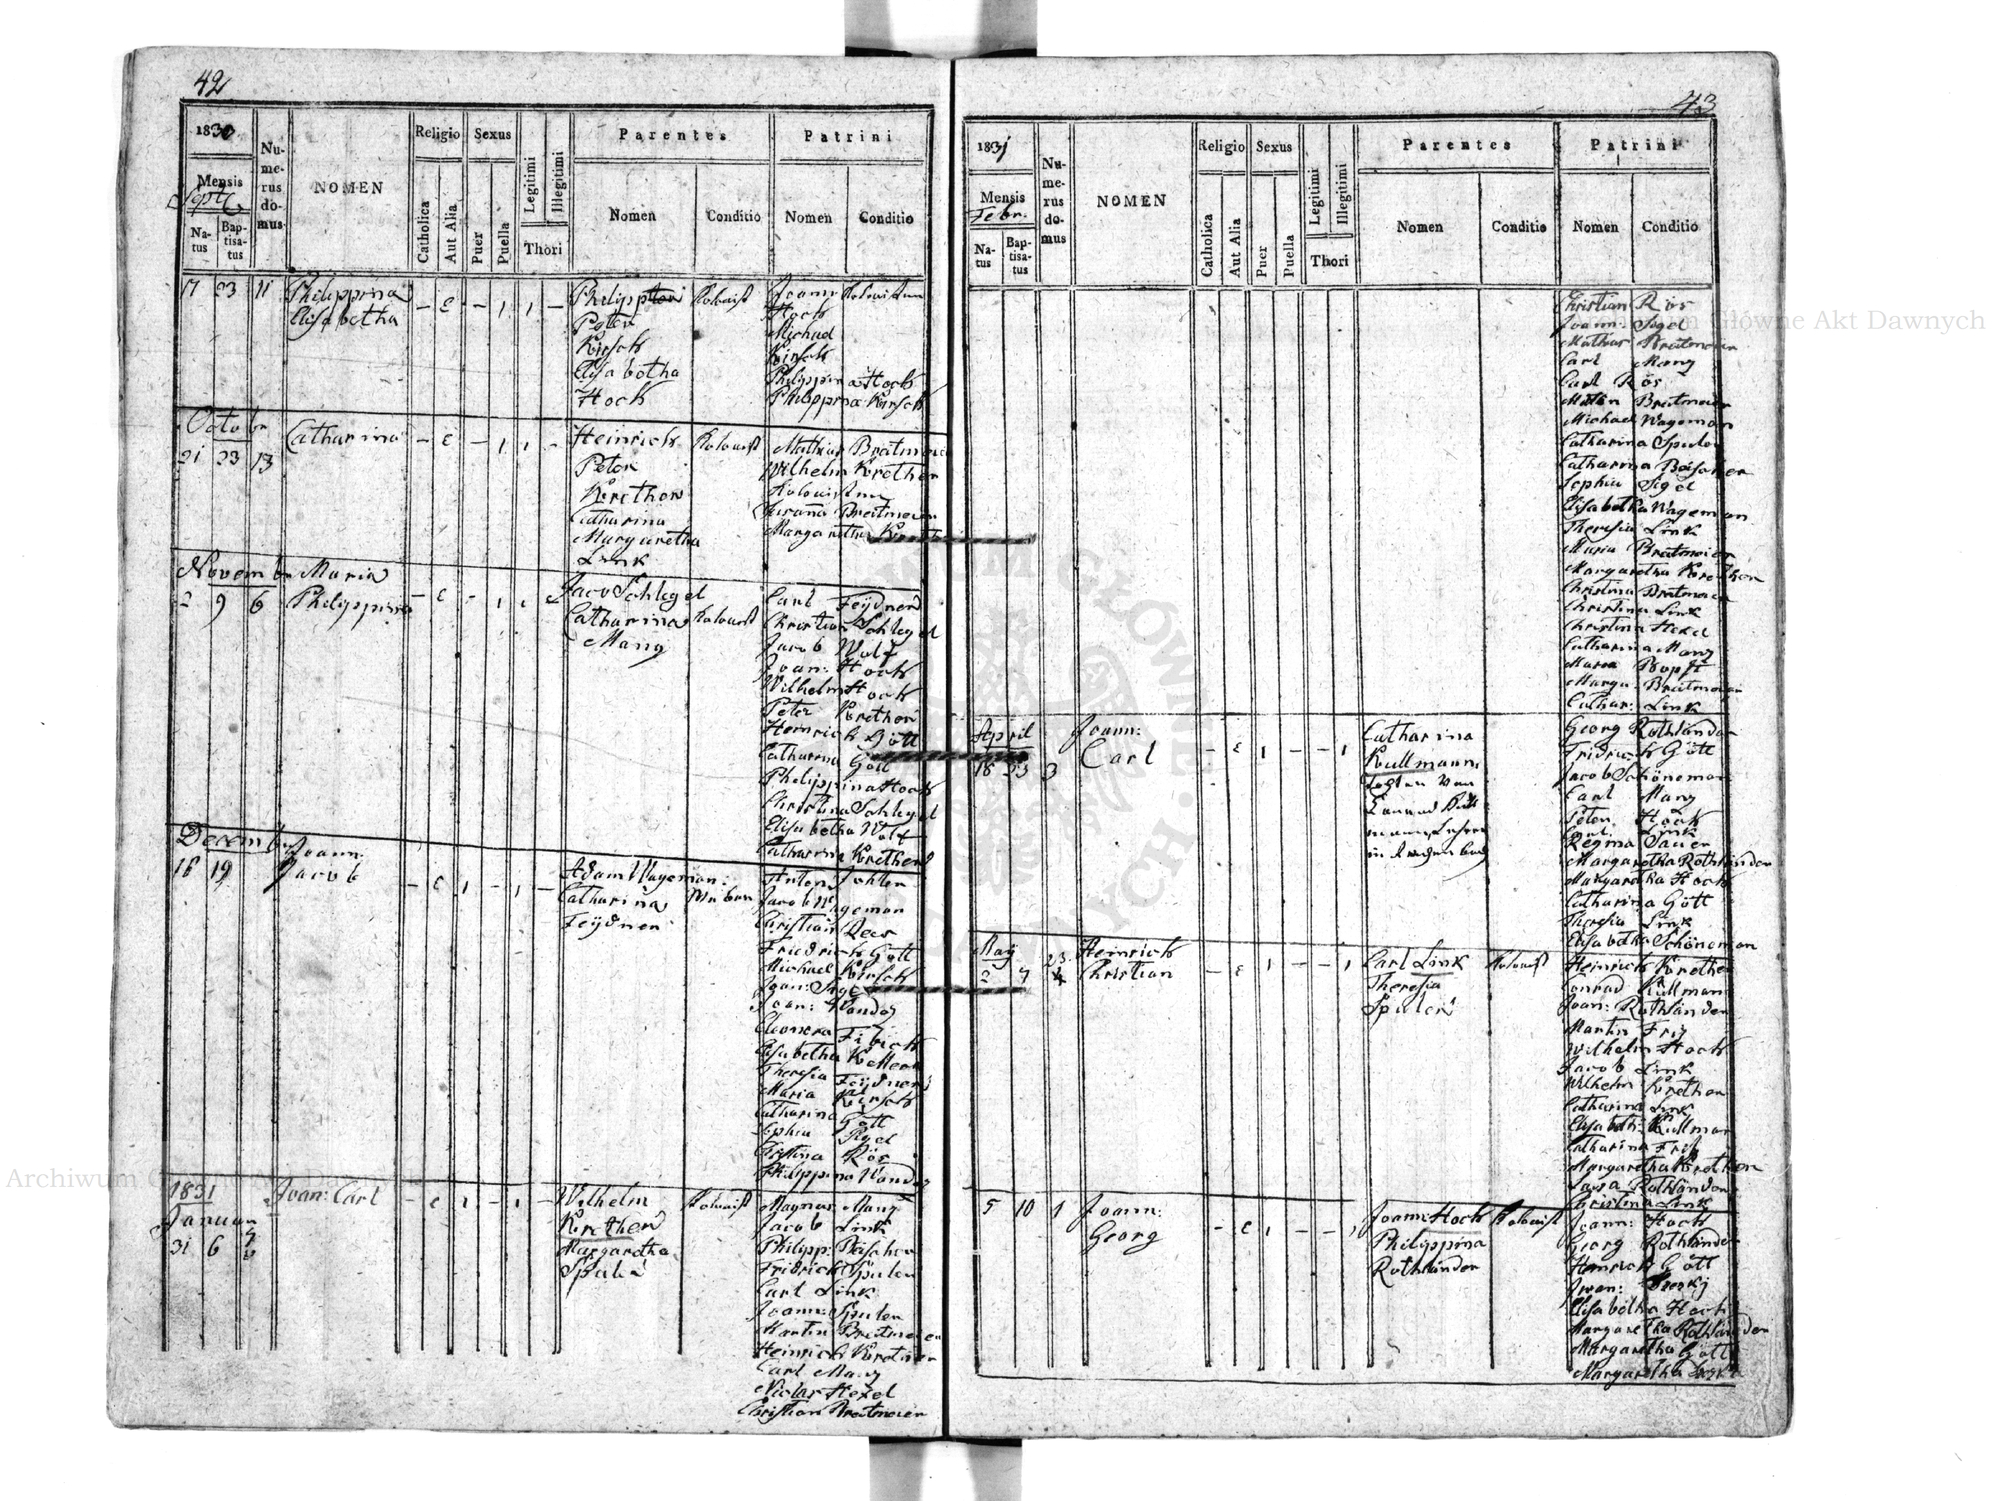 42
1830
Mensis
Septb
Na-
tus
Bap-
tisa-
tus
Nu-
me-
rus
do-
mus
NOMEN
Religio
Catholica
Aut Alia
Sexus
Puer
Puella
Legitimi
Illegitimi
Thori
Parentes
Nomen
Conditio
Patrini
Nomen
Conditio
17 23 11 Philippina
Elisabetha
- E - 1 1 -
Philipp
Peter
Kirsch
Elisabetha
Hock
Kolonist
Joann
Hock
Michael
Kirsch
Philippina Hock
Philippina Kirsch
Octobr
21 23 13
Catharina
- E - 1 1 -
Heinrich
Peter
Krether
Catharina
Margaretha
Link
Kolonist
Mathias Breitmeier
Wilhelm Krether
Breitmeier
Margaretha
Novembr
2 9 6
Maria
Philippina
- E - 1 1
Jacob Schlegel
Catharina
Mang
Kolonist
Carl Feijdner
Christian Schlegel
Jacob Wolf
Joan: Hock
Wilhelm Hock
Peter Krether
Heinrich Gött
Catharina Gött
Philippina Hock
Christina Schlegel
Elisabetha Wolf
Catharina Krether
Decembr
16 19
Joann:
Jacob
- E 1 - 1 -
Adam Wageman:
Catharina
Feijdner
Weber
Anton
Jacob Wageman
Christian
Friedrich Gött
Michael Kirsch
Joan: Sigel
Joan:
Eleonora
Elisabetha
Theresia Feijdner
Maria Kirsch
Catharina Gött
Sophia Sigel
Christina Rös
Philippina
1831
Januar
31 6
Joan: Carl
- E 1 - 1 -
Wilhelm
Krether
Margaretha
Kolonist
Magnus Mang
Jacob Link
Philipp: Beischer
Fridrich Spuler
Carl Link
Joann: Spuler
Martin Breitmeier
Heinrich Krether
Carl Mang
Niclas Hexel
Christian Breitmeier
43
1831
Mensis
Febr.
Na-
tus
Bap-
tisa-
tus
Nu-
me-
rus
do-
mus
NOMEN
Religio
Catholica
Aut Alia
Sexus
Puer
Puella
Legitimi
Illegitimi
Thori
Parentes
Nomen
Conditio
Patrini
Nomen
Conditio
Christian Rös
Joann: Sigel
Mathias Breitmeier
Carl Mang
Carl Rös
Breitmeier
Michael Wageman
Catharina Spuler
Catharina Beischer
Sophia Sigel
Elisabetha Wageman
Theresia Link
Maria Breitmeier
Margaretha Krether
Christina Breitmeier
Christina Link
Christina Hexel
Catharina Mang
Maria
Marga: Breitmeier
Cathar: Link
April
18 23 3
Joann:
Carl
- E 1 - - 1
Catharina
Kullmann
Georg Rothländer
Fridrich Gött
Jacob Schöneman
Carl Mang
Peter Hock
Carl Link
Regina Sauer
Margaretha Rothländer
Margaretha Hock
Catharina Gött
Theresia Link
Elisabetha Schöneman
Maÿ
2 7
23
Heinrich
Christian
- E 1 - - 1
Carl Link
Theresia
Spuler
Kolonist
Heinrich Krether
Conrad Kullman
Joan: Rothländer
Martin Friz
Wilhelm Hock
Jacob Link
Wilhelm Krether
Catharina Link
Elisabeth: Kullman
Catharina Friz
Margaretha Krether
Rothländer
Christina Link
5 10 1
Joann:
Georg
- E 1 - - 1
Joann: Hock
Philippina
Rothländer
Kolonist
Joann: Hock
Georg Rothländer
Heinrich Gött
Elisabetha Hock
Margaretha Rothländer
Margaretha Gött
Margaretha
Archiwum Główne Akt Dawnych
Archiwum Główne Akt Dawnych